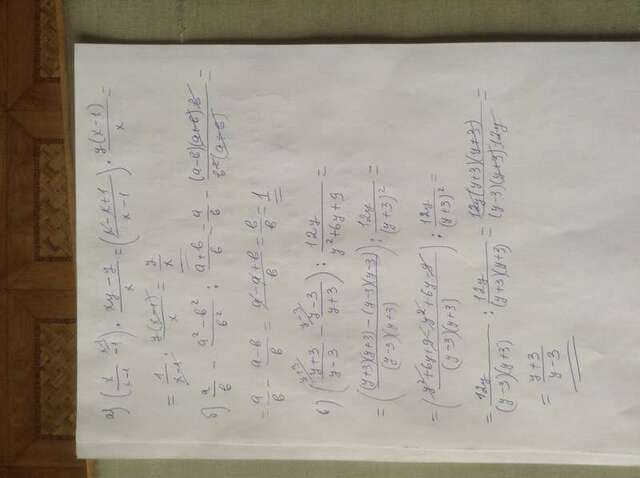 а) (x/(x-1) - 1^(x-1)) · (xy-y)/x = ((x-x+1)/(x-1)) · y(x-1)/x =
= 1/(x-1) · y(x-1)/x = y/x
б) a/в - (a²-в²)/в² : (a+в)/в = a/в - (a-в)(a+в)·в/(в²(a+в)) =
= a/в - (a-в)/в = (a-a+в)/в = в/в = 1
в) ((y+3)^(y+3)/(y-3) - (y-3)^(y-3)/(y+3)) : 12y/(y²+6y+9) =
= (((y+3)(y+3) - (y-3)(y-3))/((y-3)(y+3))) : 12y/(y+3)² =
= ((y²+6y+9-y²+6y-9)/((y-3)(y+3))) : 12y/(y+3)² =
= 12y/((y-3)(y+3)) : 12y/((y+3)(y+3)) = 12y(y+3)(y+3)/((y-3)(y+3)12y) =
= (y+3)/(y-3)